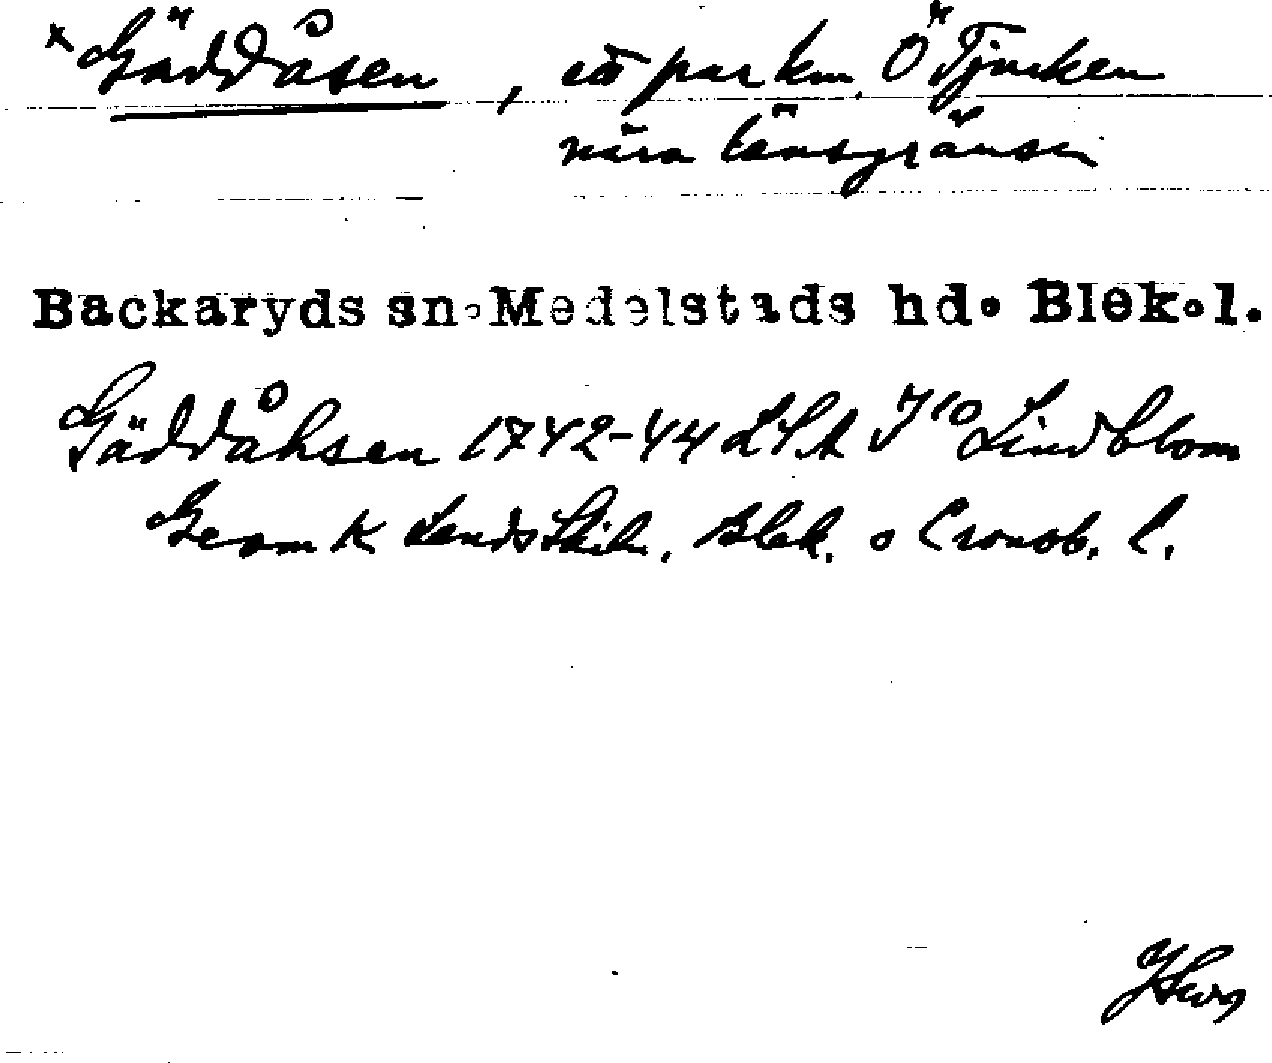 × Gäddåsen, ett par km Ö Tjurken
nära länsgränsen
Backaryds sn. Medelstads hd. Blek.l.
Gäddåhsen 1742-44 LSA J 10 Lindblom
Geom K Lands Skiln. Blek. o Cronob. l.